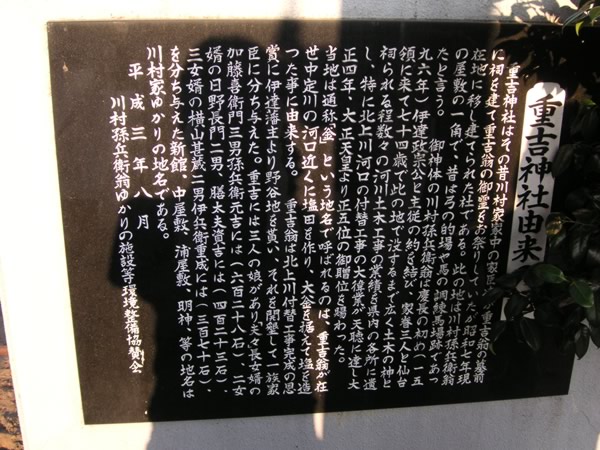 重吉神社由来
重吉神社はその昔川村家家中の家臣が、重吉翁の墓前
に祠を建て重吉翁の御霊をお祭りしていたが昭和七年現
在地に移し建てられた社である。此の地は川村孫兵衛翁
の屋敷の一角で、昔は弓の的場や馬の調練馬場跡であっ
たと言う。　御神体の川村孫兵衛翁は慶長の初め(一五
九六年)伊達政宗公と主従の約を結び、家眷三人と仙台
領に来て七十四歳で此の地で没するまで広く土木の神と
祠られる程数々の河川土木工事の業績を県内の各所に遺
し、特に北上川河口の付替工事の大偉業が天聴に達し大
正四年、大正天皇より正五位の御贈位を賜わった。
当地は通称(釜)という地名で呼ばれるのは、重吉翁が在
世中定川の河口近くに塩田を作り、大釜を据えて塩を造
った事に由来する。　重吉翁は北上川付替工事完成の恩
賞に伊達藩主より野谷地を賞い、それを開墾して一族家
臣に分ち与えた。重吉には三人の娘があり夫々長女婿の
加藤喜衛門三男孫兵衛元吉には(六百二十八石)、二女
婿の日野長門二男、膳太夫資吉には(四百二十三石)、
三女婿の横山甚蔵二男伊兵衛重成には(三百七十石)、
を分ち与えた新館、中屋敷、浦屋敷、明神、等の地名は
川村家ゆかりの地名である。
平成三年八月
川村孫兵衛翁ゆかりの施設等環境整備協賛会